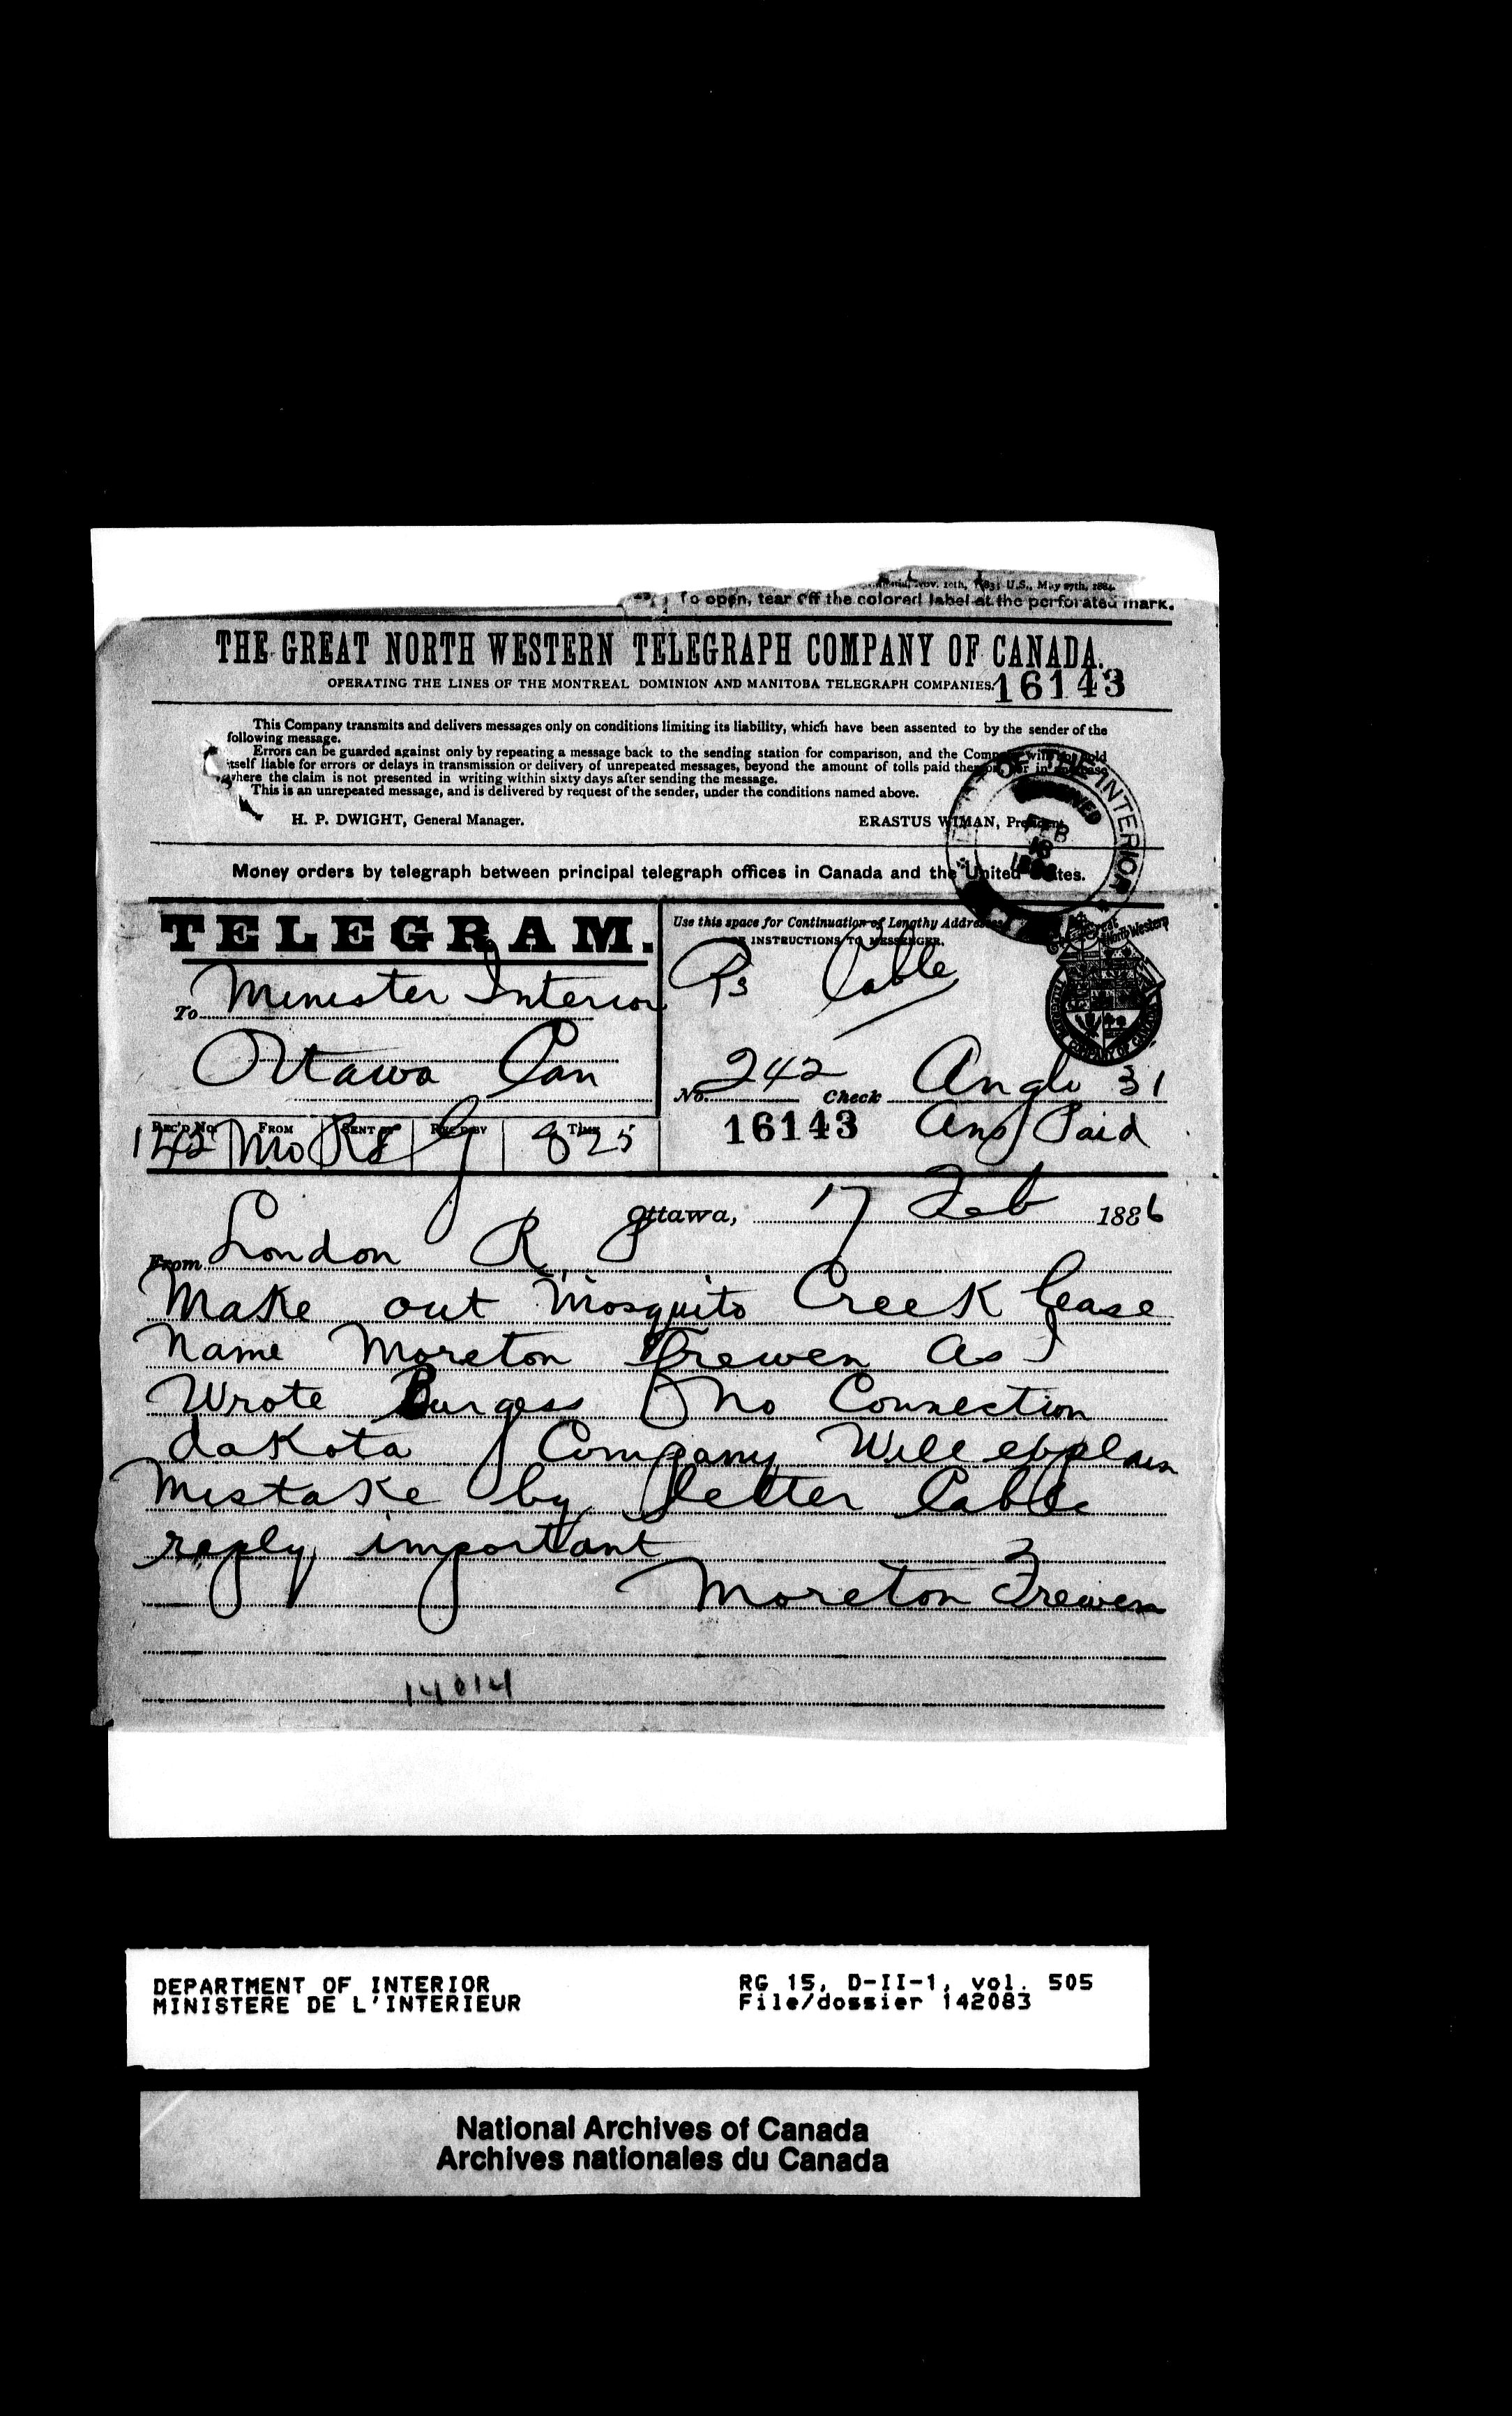 Nov. 10th, 1883; U.S., May 27th, 1884.
To open, tear off the colored label at the perforated mark.
THE GREAT NORTH WESTERN TELEGRAPH COMPANY OF CANADA.
OPERATING THE LINES OF THE MONTREAL DOMINION AND MANITOBA TELEGRAPH COMPANIES.
16143
This Company transmits and delivers messages only on conditions limiting its liability, which have been assented to by the sender of the
following message.
Errors can be guarded against only by repeating a message back to the sending station for comparison, and the Company will not hold
itself liable for errors or delays in transmission or delivery of unrepeated messages, beyond the amount of tolls paid thereon, nor in any case
where the claim is not presented in writing within sixty days after sending the message.
This is an unrepeated message, and is delivered by request of the sender, under the conditions named above.
H. P. DWIGHT, General Manager.
ERASTUS WIMAN, President.
INTERIOR
RECEIVED
FEB
18
1886
Money orders by telegraph between principal telegraph offices in Canada and the United States.
TELEGRAM.
Use this space for Continuation of Lengthy Address
OR INSTRUCTIONS TO MESSENGER.
Great North Western
To Minister Interior
Cable
Ottawa Can
No. 242 Check Anglo 31
16143 Ans Paid
REC'D NO. FROM SENT BY REC'D BY TIME
142 Mo Rs G 825
Ottawa, 17 Feb 1886
From London R
Make out Mosquito Creek lease
name Moreton Frewen as I
Wrote Burgess no Connection
dakota Company Will explain
Mistake by letter Cable
reply important
Moreton Frewen
14014
DEPARTMENT OF INTERIOR
MINISTERE DE L'INTERIEUR
RG 15, D-II-1, vol. 505
File/dossier 142083
National Archives of Canada
Archives nationales du Canada